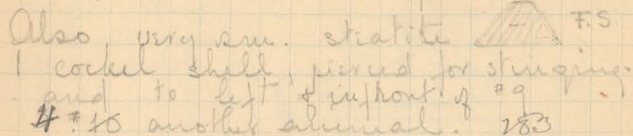 Also very sm. steatite F.S
1 cockel shell, pierced for stringing.
and to left & infront of #9
#10 another animal. 283